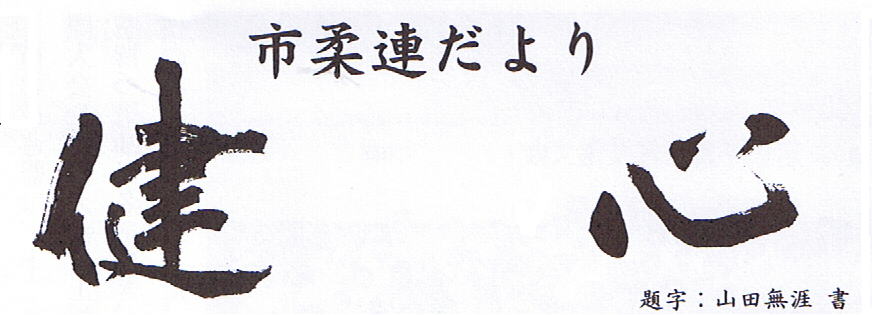 市柔連だより
健心
題字：山田無涯 書